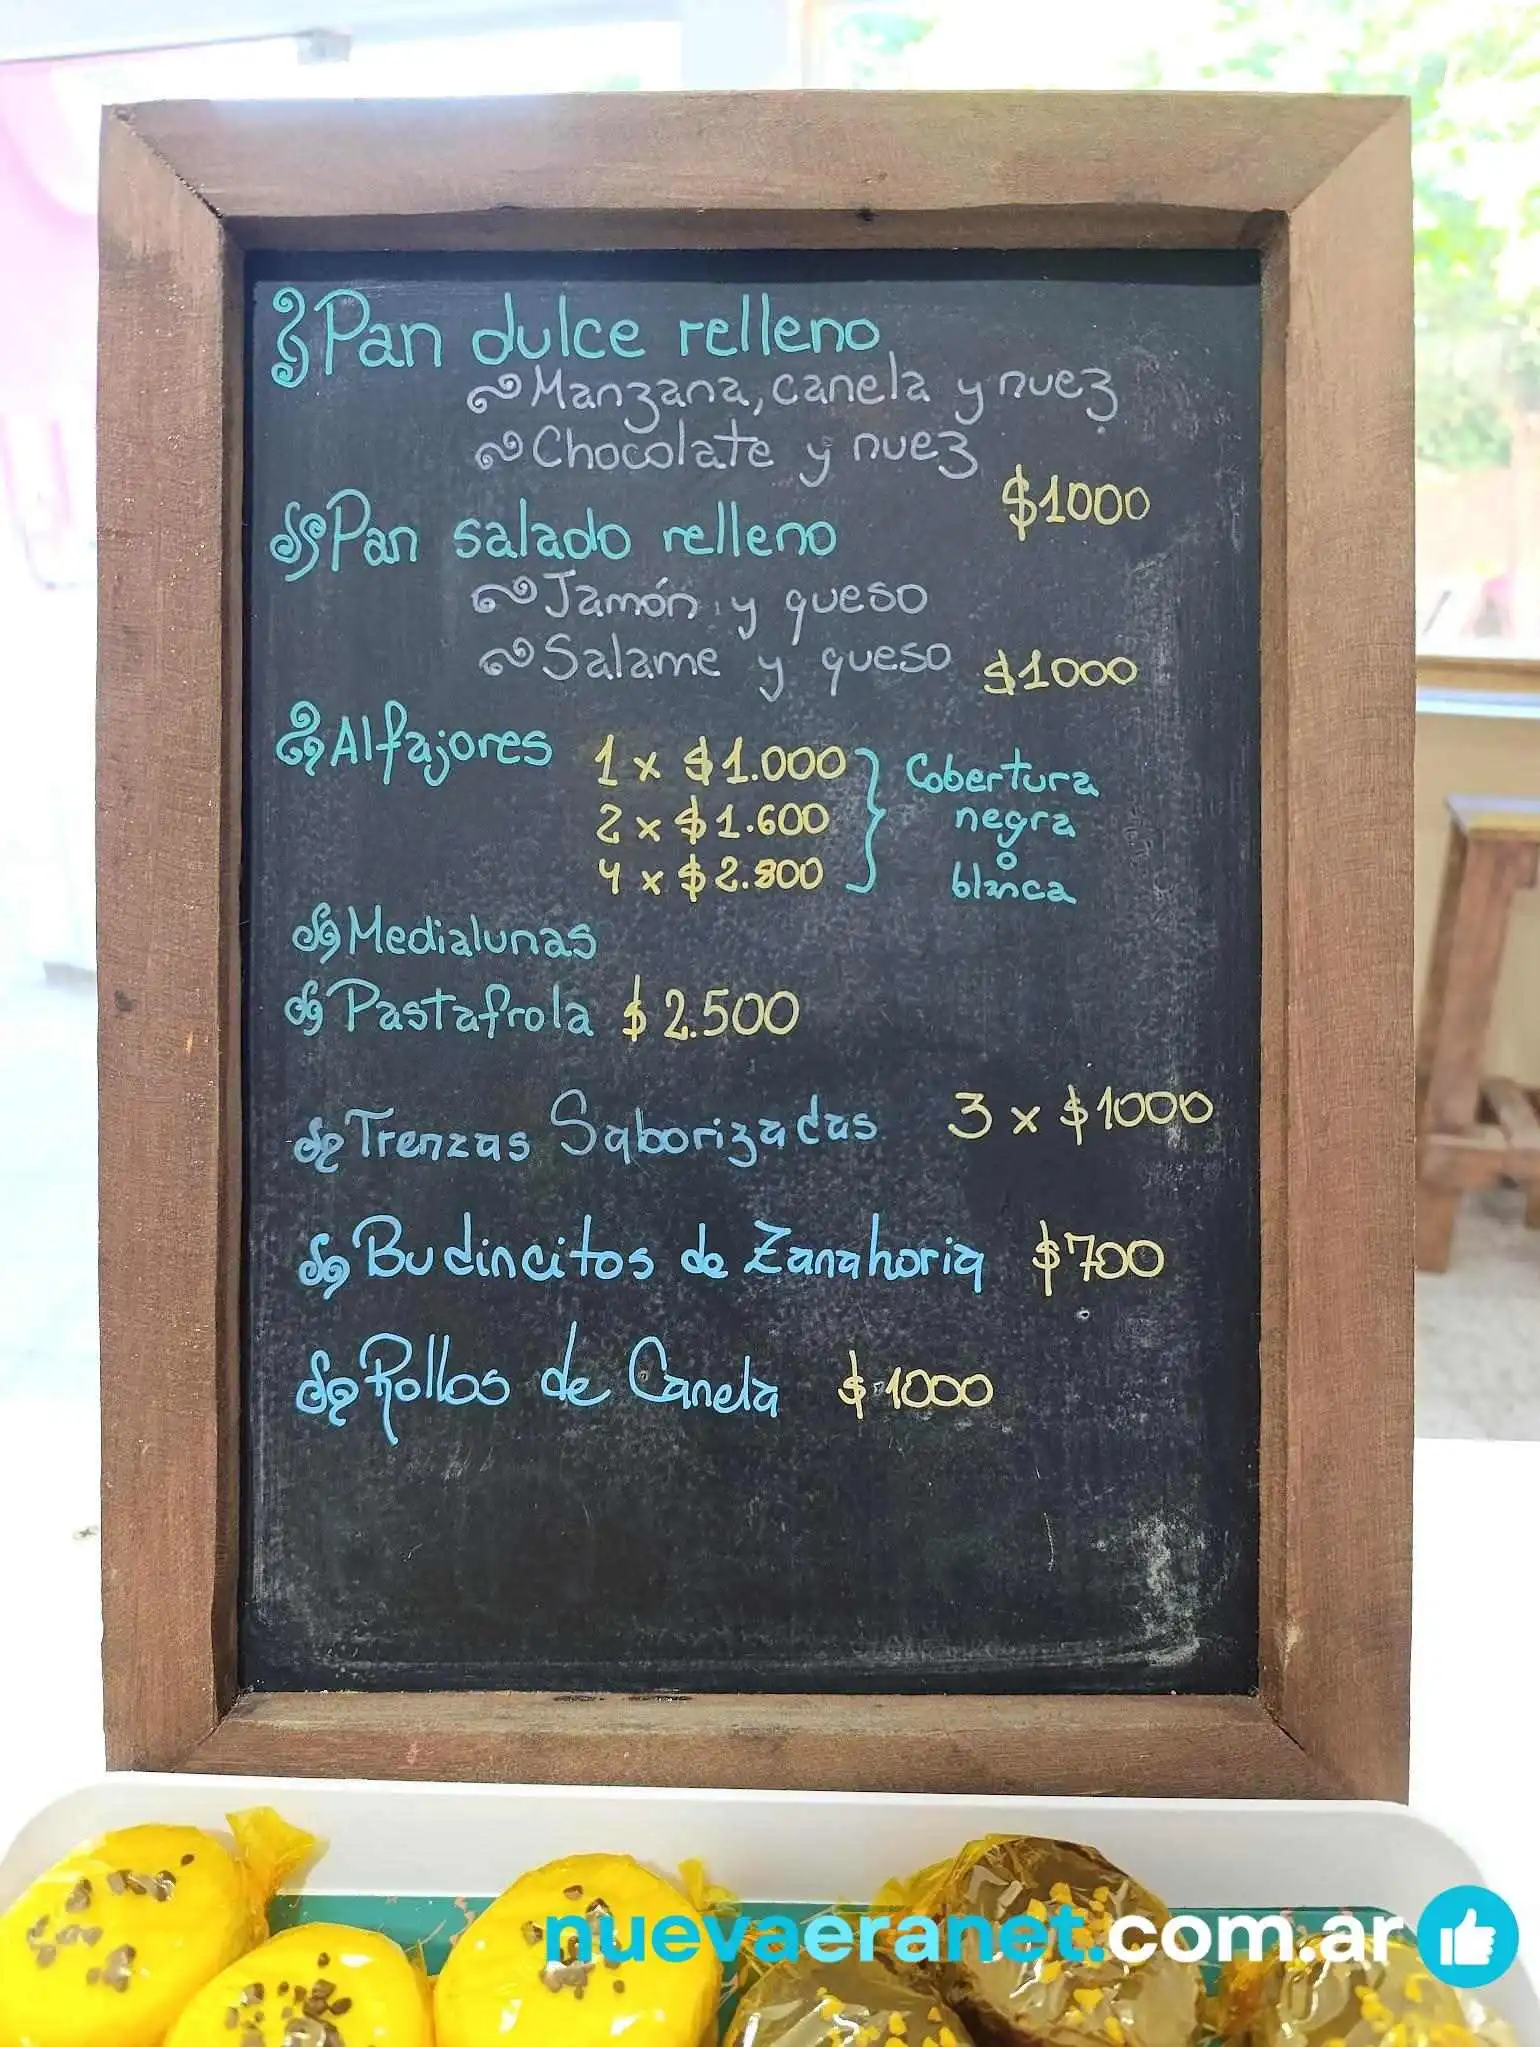 Pan dulce relleno
Manzana, canela y nuez
Chocolate y nuez
$1000
Pan salado relleno
Jamón y queso
Salame y queso $1000
Alfajores 1 x $1.000
2 x $1.600
4 x $2.800
Cobertura
negra
o
blanca
Medialunas
Pastafrola $2.500
Trenzas Saborizadas 3 x $1000
Budincitos de Zanahoria $700
Rollos de Canela $1000
nuevaeranet.com.ar